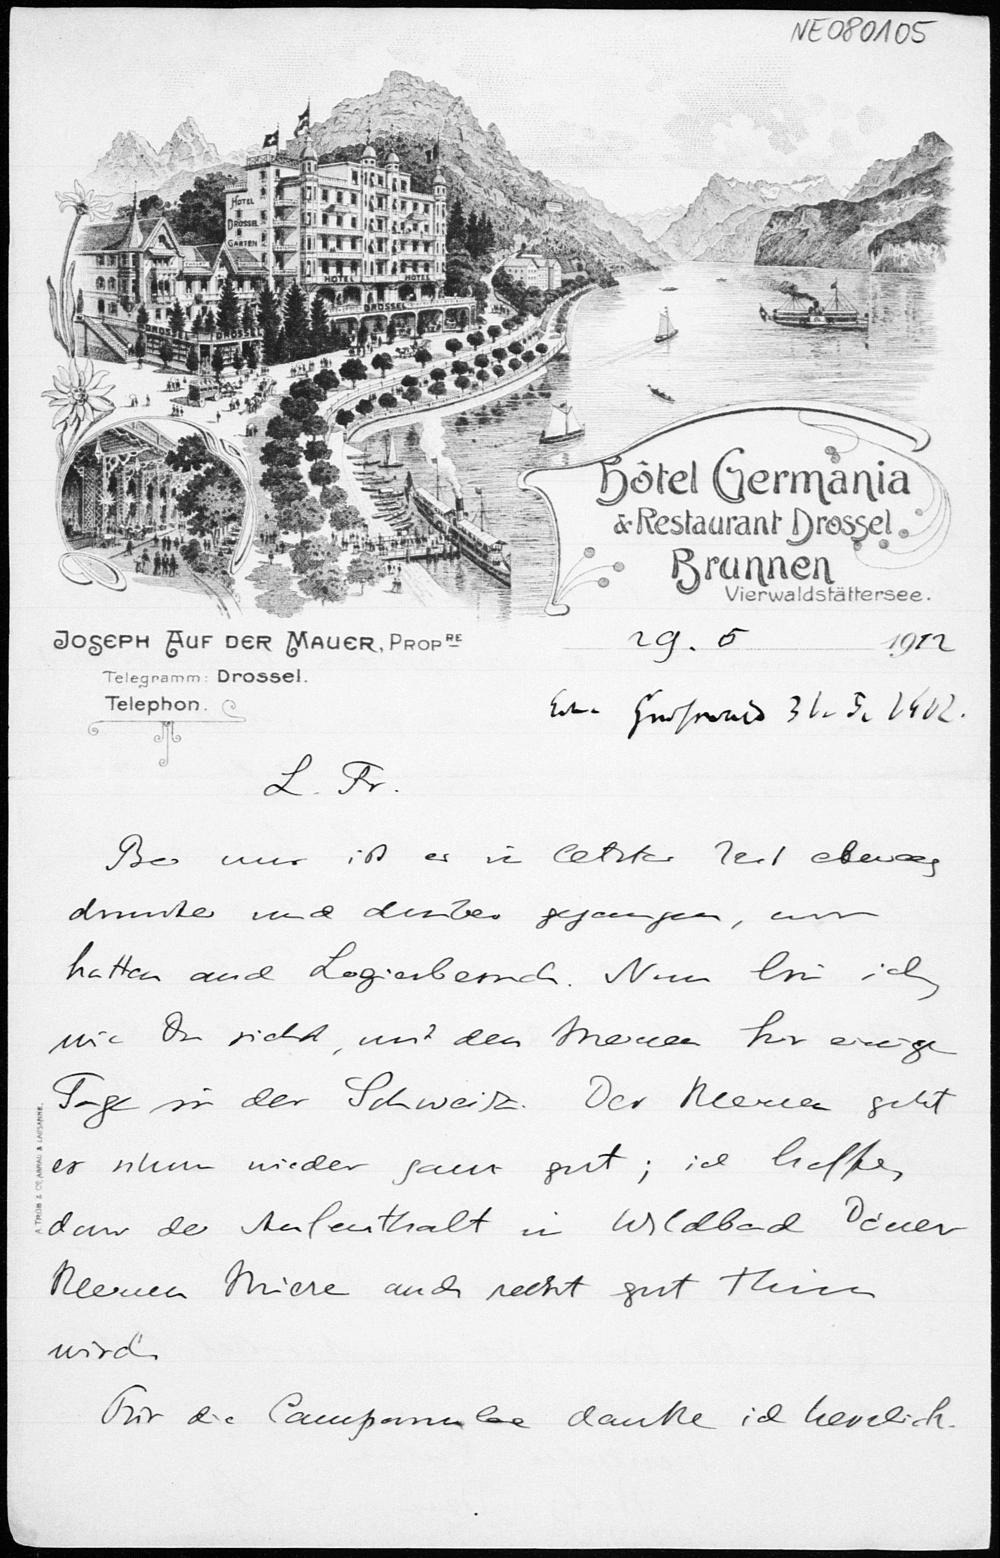 NE080105
HOTEL
DROSSEL
GARTEN
HOTEL HOTEL
DROSSEL
DROSSEL
Hôtel Germania
& Restaurant Drossel
Brunnen
Vierwaldstättersee.
JOSEPH AUF DER MAUER, PROPRE
29. 5 1912
Telegramm: Drossel.
Telephon.
31. 5. 1912.
L. Fr.
Bei uns ist es in letzter Zeit etwas
drunter und drüber gegangen, wir
hatten auch Logierbesuch. Nun bin ich,
wie Du siehst, mit den Meinen für einige
Tage in der Schweiz. Der Kleinen geht
es schon wieder ganz gut; ich hoffe,
dass der Aufenthalt in Wildbad Deiner
kleinen Miere auch recht gut thun
wird.
Für die Campanulae danke ich herzlich.
A. TRÜB & CIE, AARAU & LAUSANNE.